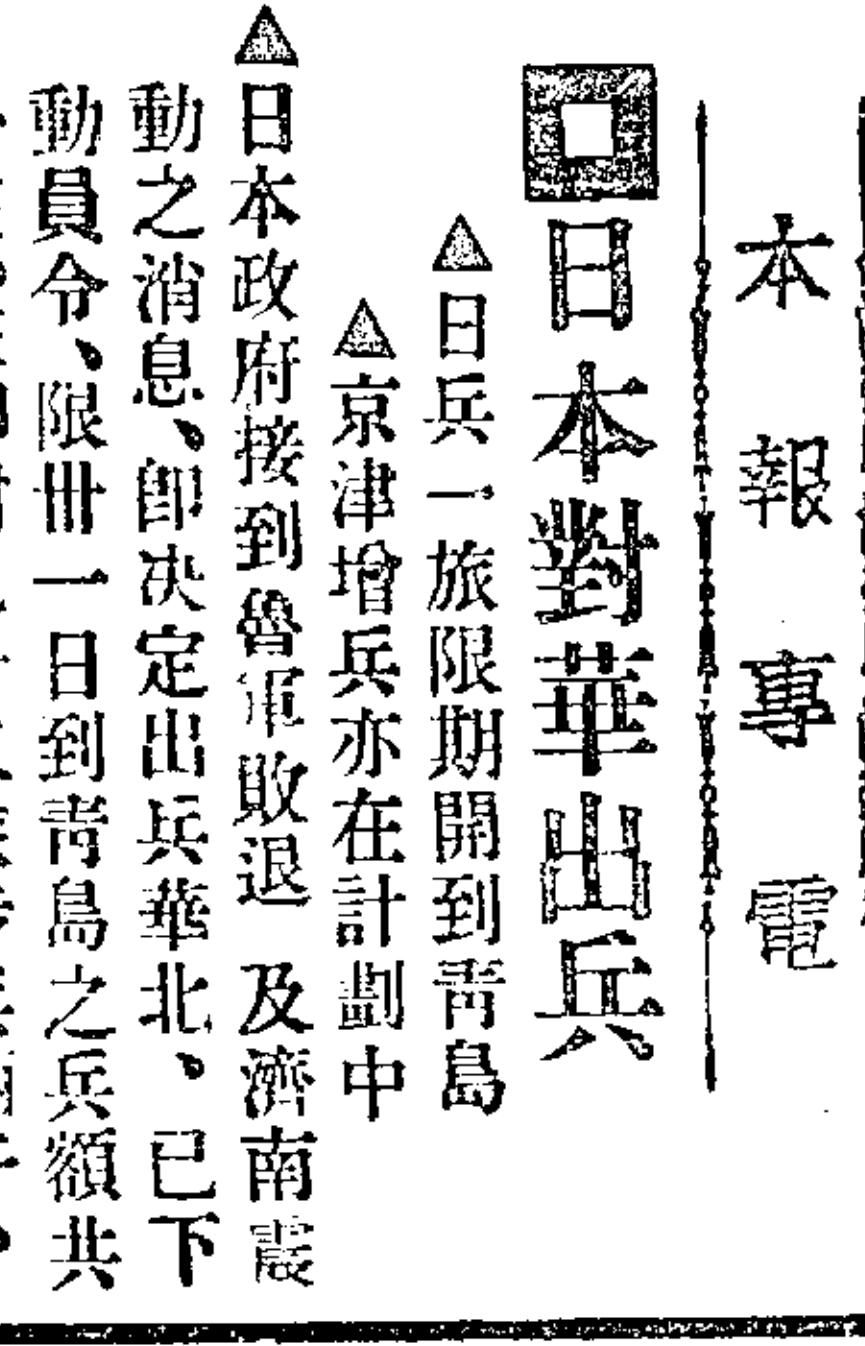 本報專電
日本對華出兵
▲日兵一旅限期開到靑島
▲京津增兵亦在計劃中
▲日本政府接到魯軍敗退 及濟南震
動之消息、卽决定出兵華北、已下
動員令、限卅一日到靑島之兵額共